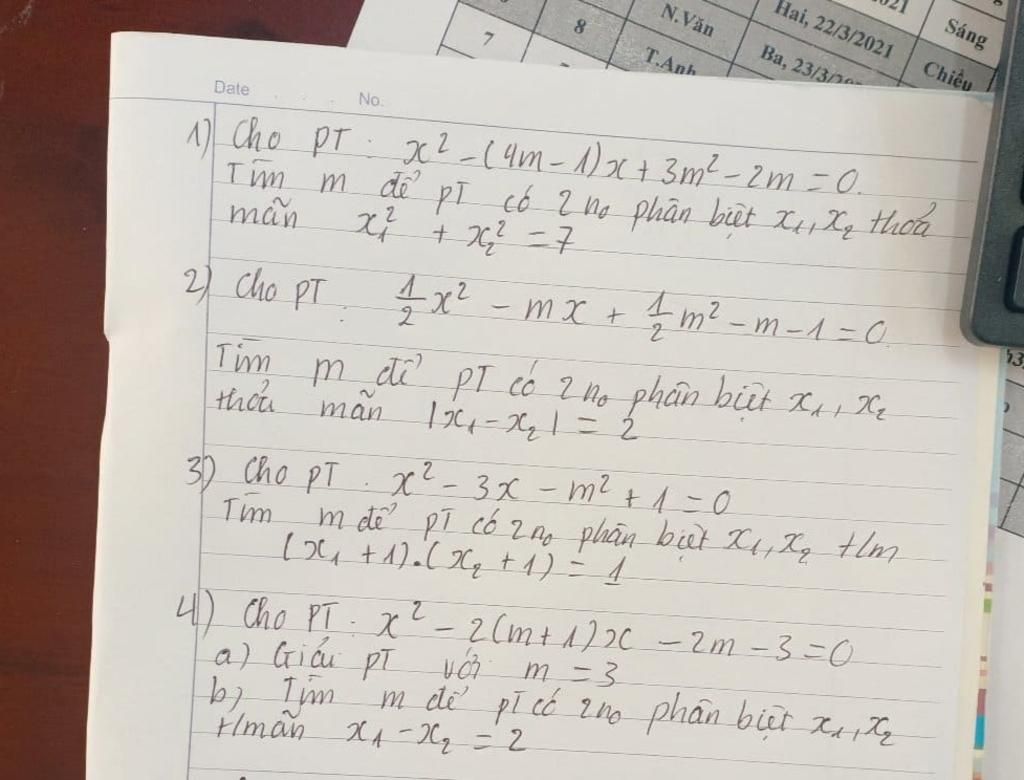 7
8
N.Văn
Hai, 22/3/2021
Sáng
T.Anh
Ba, 23/3/20
Chiều
Date
No.
1) Cho PT: x² - (4m - 1)x + 3m² - 2m = 0.
Tìm m để PT có 2 n₀ phân biệt x₁, x₂ thoả
mãn x₁² + x₂² = 7
2) Cho PT: 1/2 x² - mx + 1/2 m² - m - 1 = 0
Tìm m để PT có 2 n₀ phân biệt x₁, x₂
thỏa mãn |x₁ - x₂| = 2
3) Cho PT: x² - 3x - m² + 1 = 0
Tìm m để PT có 2 n₀ phân biệt x₁, x₂ t/m
(x₁ + 1).(x₂ + 1) = 1
4) Cho PT: x² - 2(m+1)x - 2m - 3 = 0
a) Giải PT với m = 3
b) Tìm m để PT có 2 n₀ phân biệt x₁, x₂
t/mãn x₁ - x₂ = 2